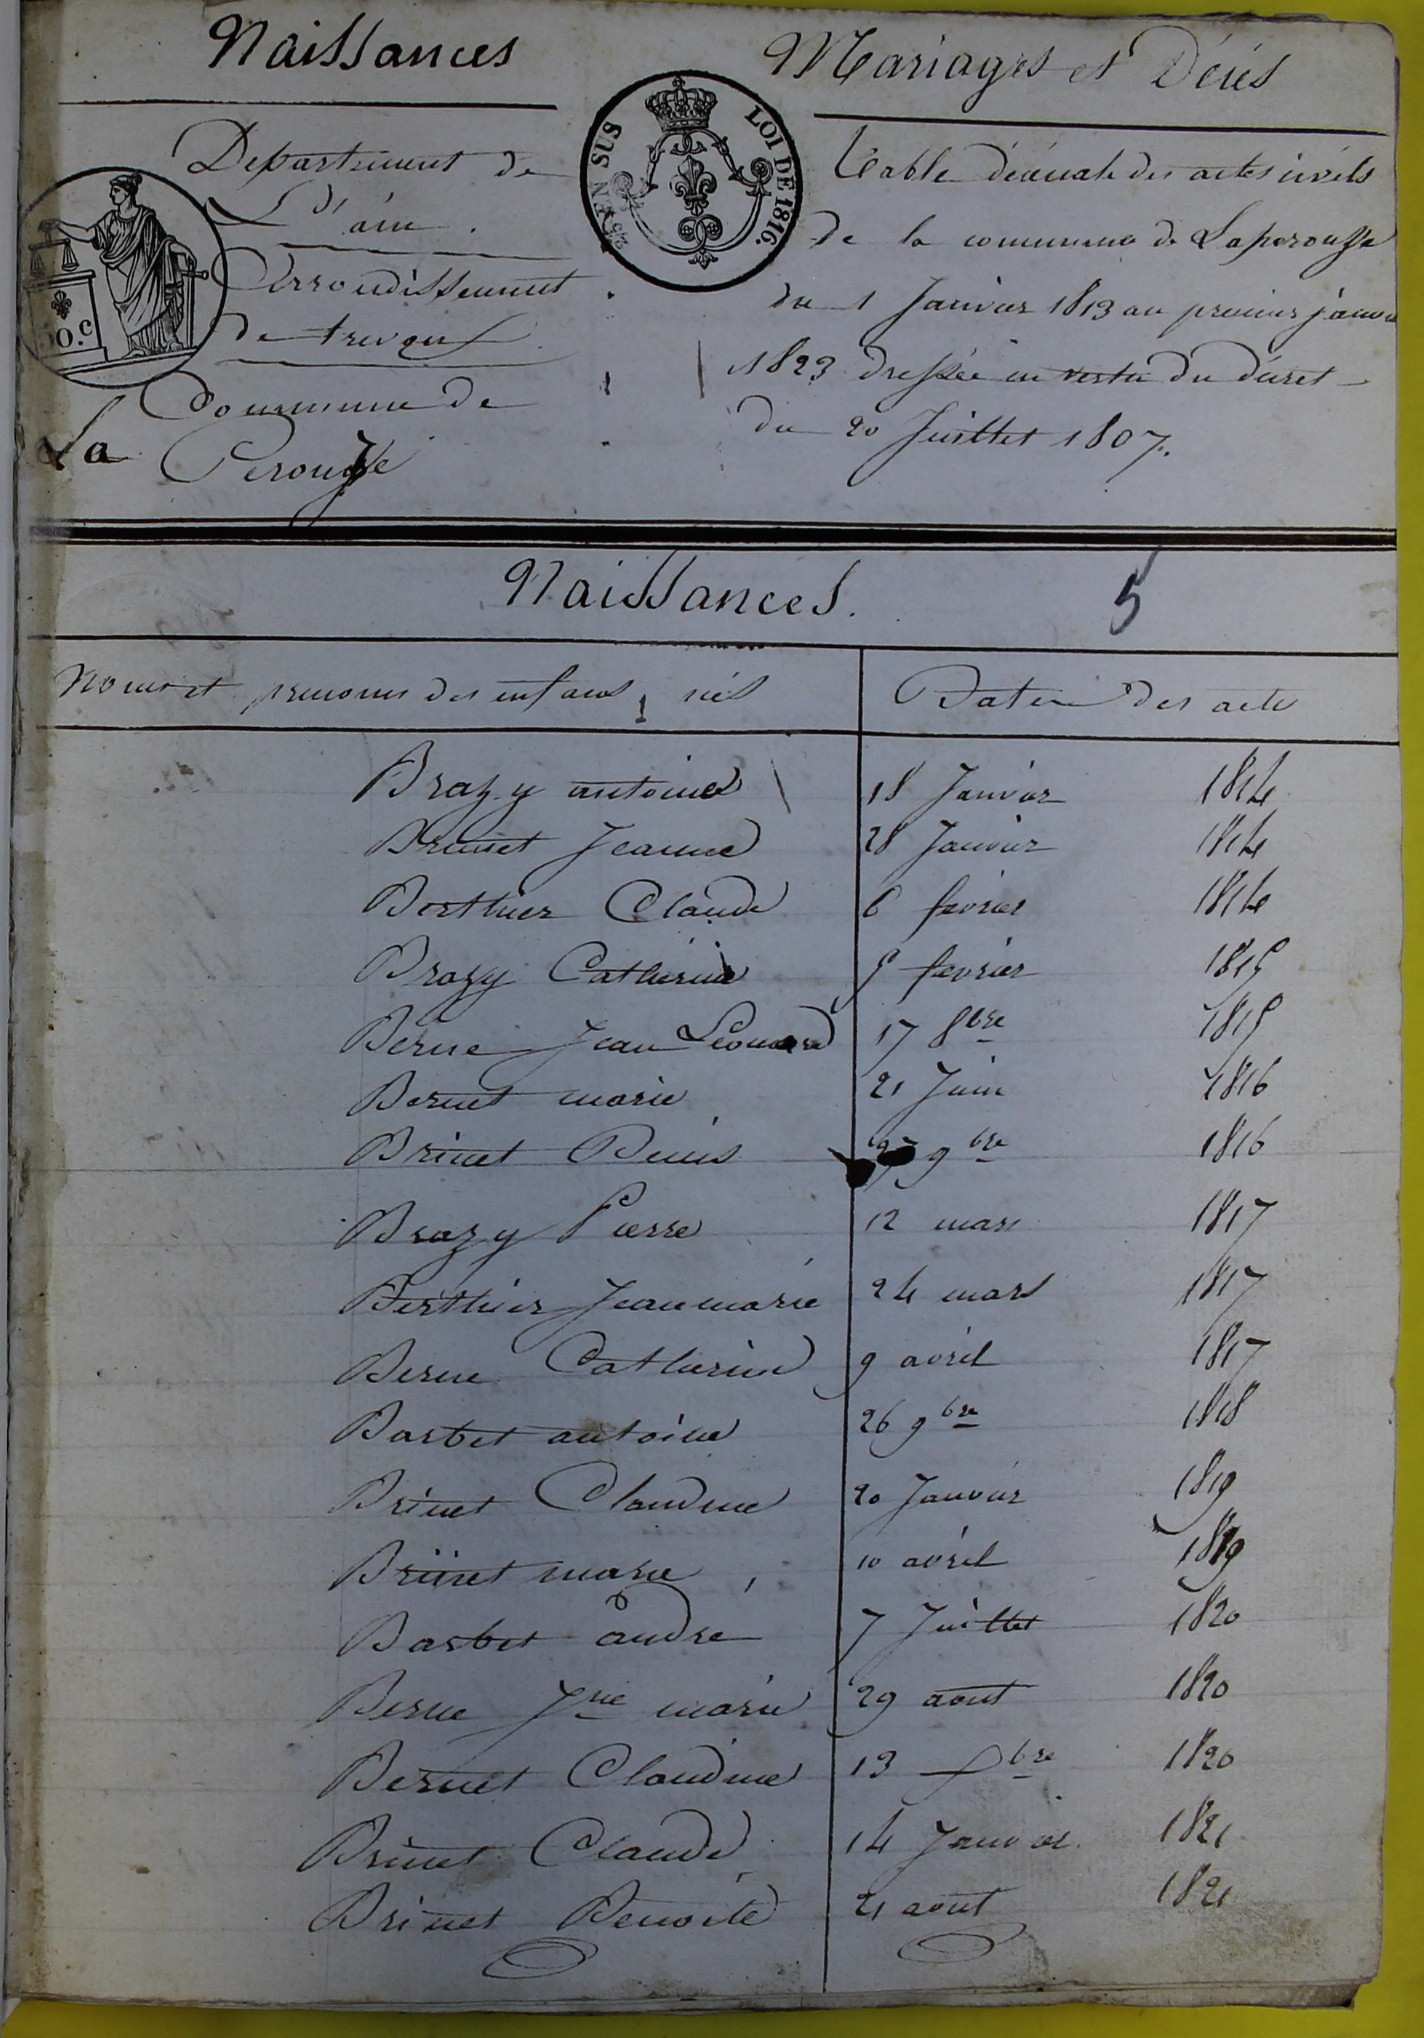 Naissances
Mariages et Décés
Departement de
L'ain.
Arrondissement
de trevoux
Commune de
La Perouse
50.c
25 EN SUS
LOI DE 1816.
Table décénale des actes civils
de la commune de Laperousse
du 1 Janvier 1813 au premier janvier
1823 dressée en vertu du décret
du 20 Juillet 1807.
Naissances. 5
Noms et prenoms des enfans nés
Date des actes
Brazy antoine 18 Janvier 1814
Brunet Jeanne 28 Janvier 1814
Berthier Claude 6 fevrier 1814
Brazy Catherine 5 fevrier 1815
Berne Jean Léonard 17 8bre 1815
Bernet marie 21 Juin 1816
Brinet Denis 27 9bre 1816
Brazy Pierre 12 mars 1817
Berthier Jean marie 24 mars 1817
Berne Catherine 9 avril 1817
Barbet antoine 26 9bre 1818
Brinet Claudine 20 Janvier 1819
Brinet marie 10 avril 1819
Barbet andré 7 Juillet 1820
Berne Jne marie 29 aout 1820
Bernet Claudine 13 bre 1820
Brinet Claude 14 Janvier 1821
Brinet Benoite 21 aout 1821